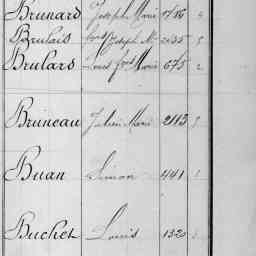 Brunard Joseph Marie 1786
Brulais Joseph M. 2435
Brulard Louis Marie 675 2
Bruneau Julien Marie 2113
Buan Simon 441
Buchet Louis 1320